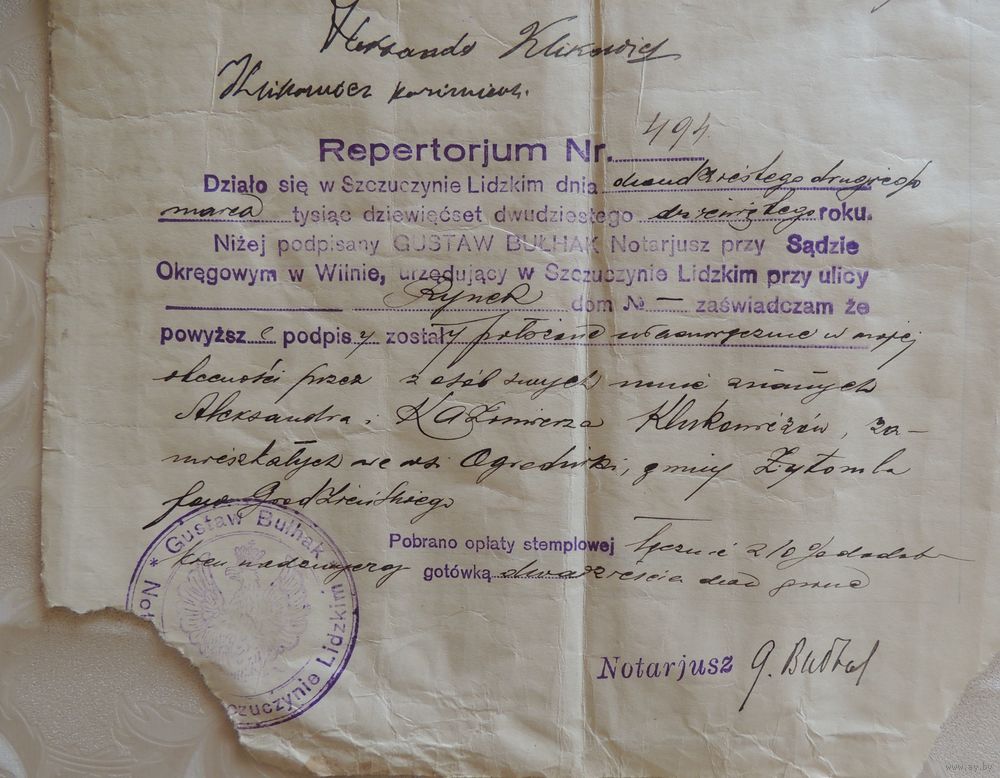 Klikowicz
Klikowicz Kazimierz.
494
Repertorjum Nr.
Działo się w Szczuczynie Lidzkim dnia dwudziestego drugiego
marca tysiąc dziewięćset dwudziestego dziewiątego roku.
Niżej podpisany GUSTAW BUŁHAK Notarjusz przy Sądzie
Okręgowym w Wilnie, urzędujący w Szczuczynie Lidzkim przy ulicy
Rynek dom № — zaświadczam że
powyższe podpisy zostały położone własnoręcznie w mojej
obecności przez osób mnie znanych
Aleksandra i Kazimierza Klukowiczów, za-
mieszkałych we wsi Ogrodniki, gminy Żytomla
pow. Grodzieńskiego
Pobrano opłaty stemplowej łącznie z 10% dodat
kiem nadzwyczaj gotówką dwadzieścia dwa grosze
* Gustaw Bułhak
Not
czuczynie Lidzkim
Notarjusz G. Bułhak
www.ay.by